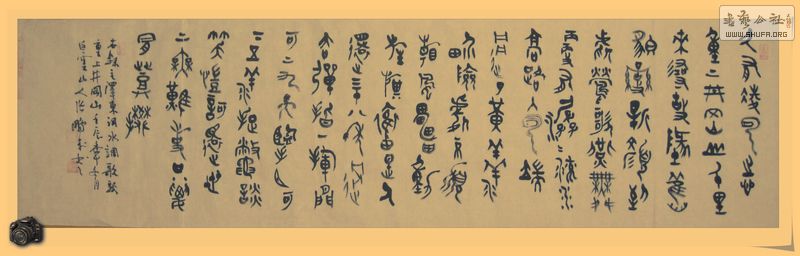 久有凌雲志
重上井岡山千里
來尋故地舊
貌變新顏到
處鶯歌燕舞
更有潺潺流水
高路入雲端
過了黃洋界
險處不須看
風雷動
旌旗奮是人
寰三十八年過
去彈指一揮間
可上九天攬月可
下五洋捉鱉談
笑凱歌還世
上無難事只要
肯登攀
右錄毛澤東詞水調歌頭
重上井岡山壬辰年
書藝公社
WWW.SHUFA.ORG